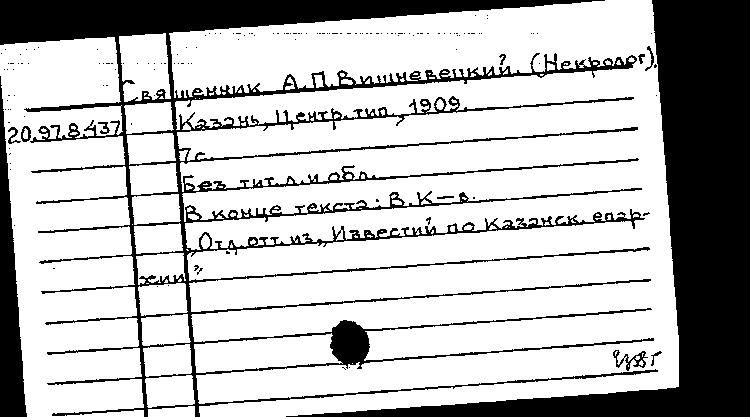 Священник А.П.Вишневецкий. (Некролог).
20.97.8.437 Казань, Центр. тип., 1909.
7с.
Без тит.л. и обл.
В конце текста: В.К-в.
„Отд. отт. из „Известий по Казанск. епар-
хии".